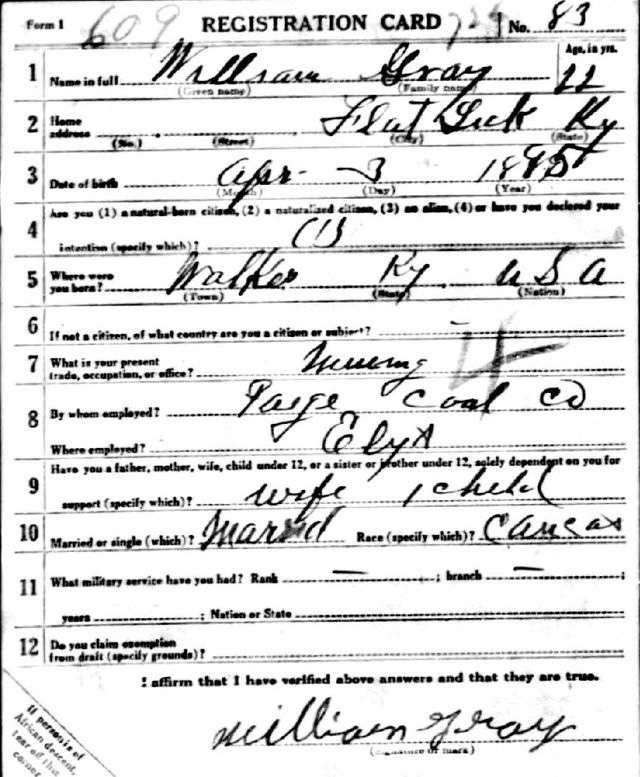 Form 1 609 REGISTRATION CARD No. 83
Age, in yrs.
1 Name in full William Gray 22
(Given name) (Family name)
2 Home address Flat Lick Ky
(No.) (Street) (City) (State)
3 Date of birth Apr - 3 1895
(Month) (Day) (Year)
4 Are you (1) a natural-born citizen, (2) a naturalized citizen, (3) an alien, (4) or have you declared your
intention (specify which)? (1)
5 Where were you born? Walker Ky U S A
(Town) (State) (Nation)
6 If not a citizen, of what country are you a citizen or subject? -
7 What is your present
trade, occupation, or office? Mining 4
8 By whom employed? Paige Coal Co
Where employed? Elys
9 Have you a father, mother, wife, child under 12, or a sister or brother under 12, solely dependent on you for
support (specify which)? wife 1 child
10 Married or single (which)? Married Race (specify which)? Caucas
11 What military service have you had? Rank — ; branch — ;
years ; Nation or State
12 Do you claim exemption
from draft (specify grounds)?
I affirm that I have verified above answers and that they are true.
William Gray
(Signature or mark)
If person is of
African descent,
tear off this
corner